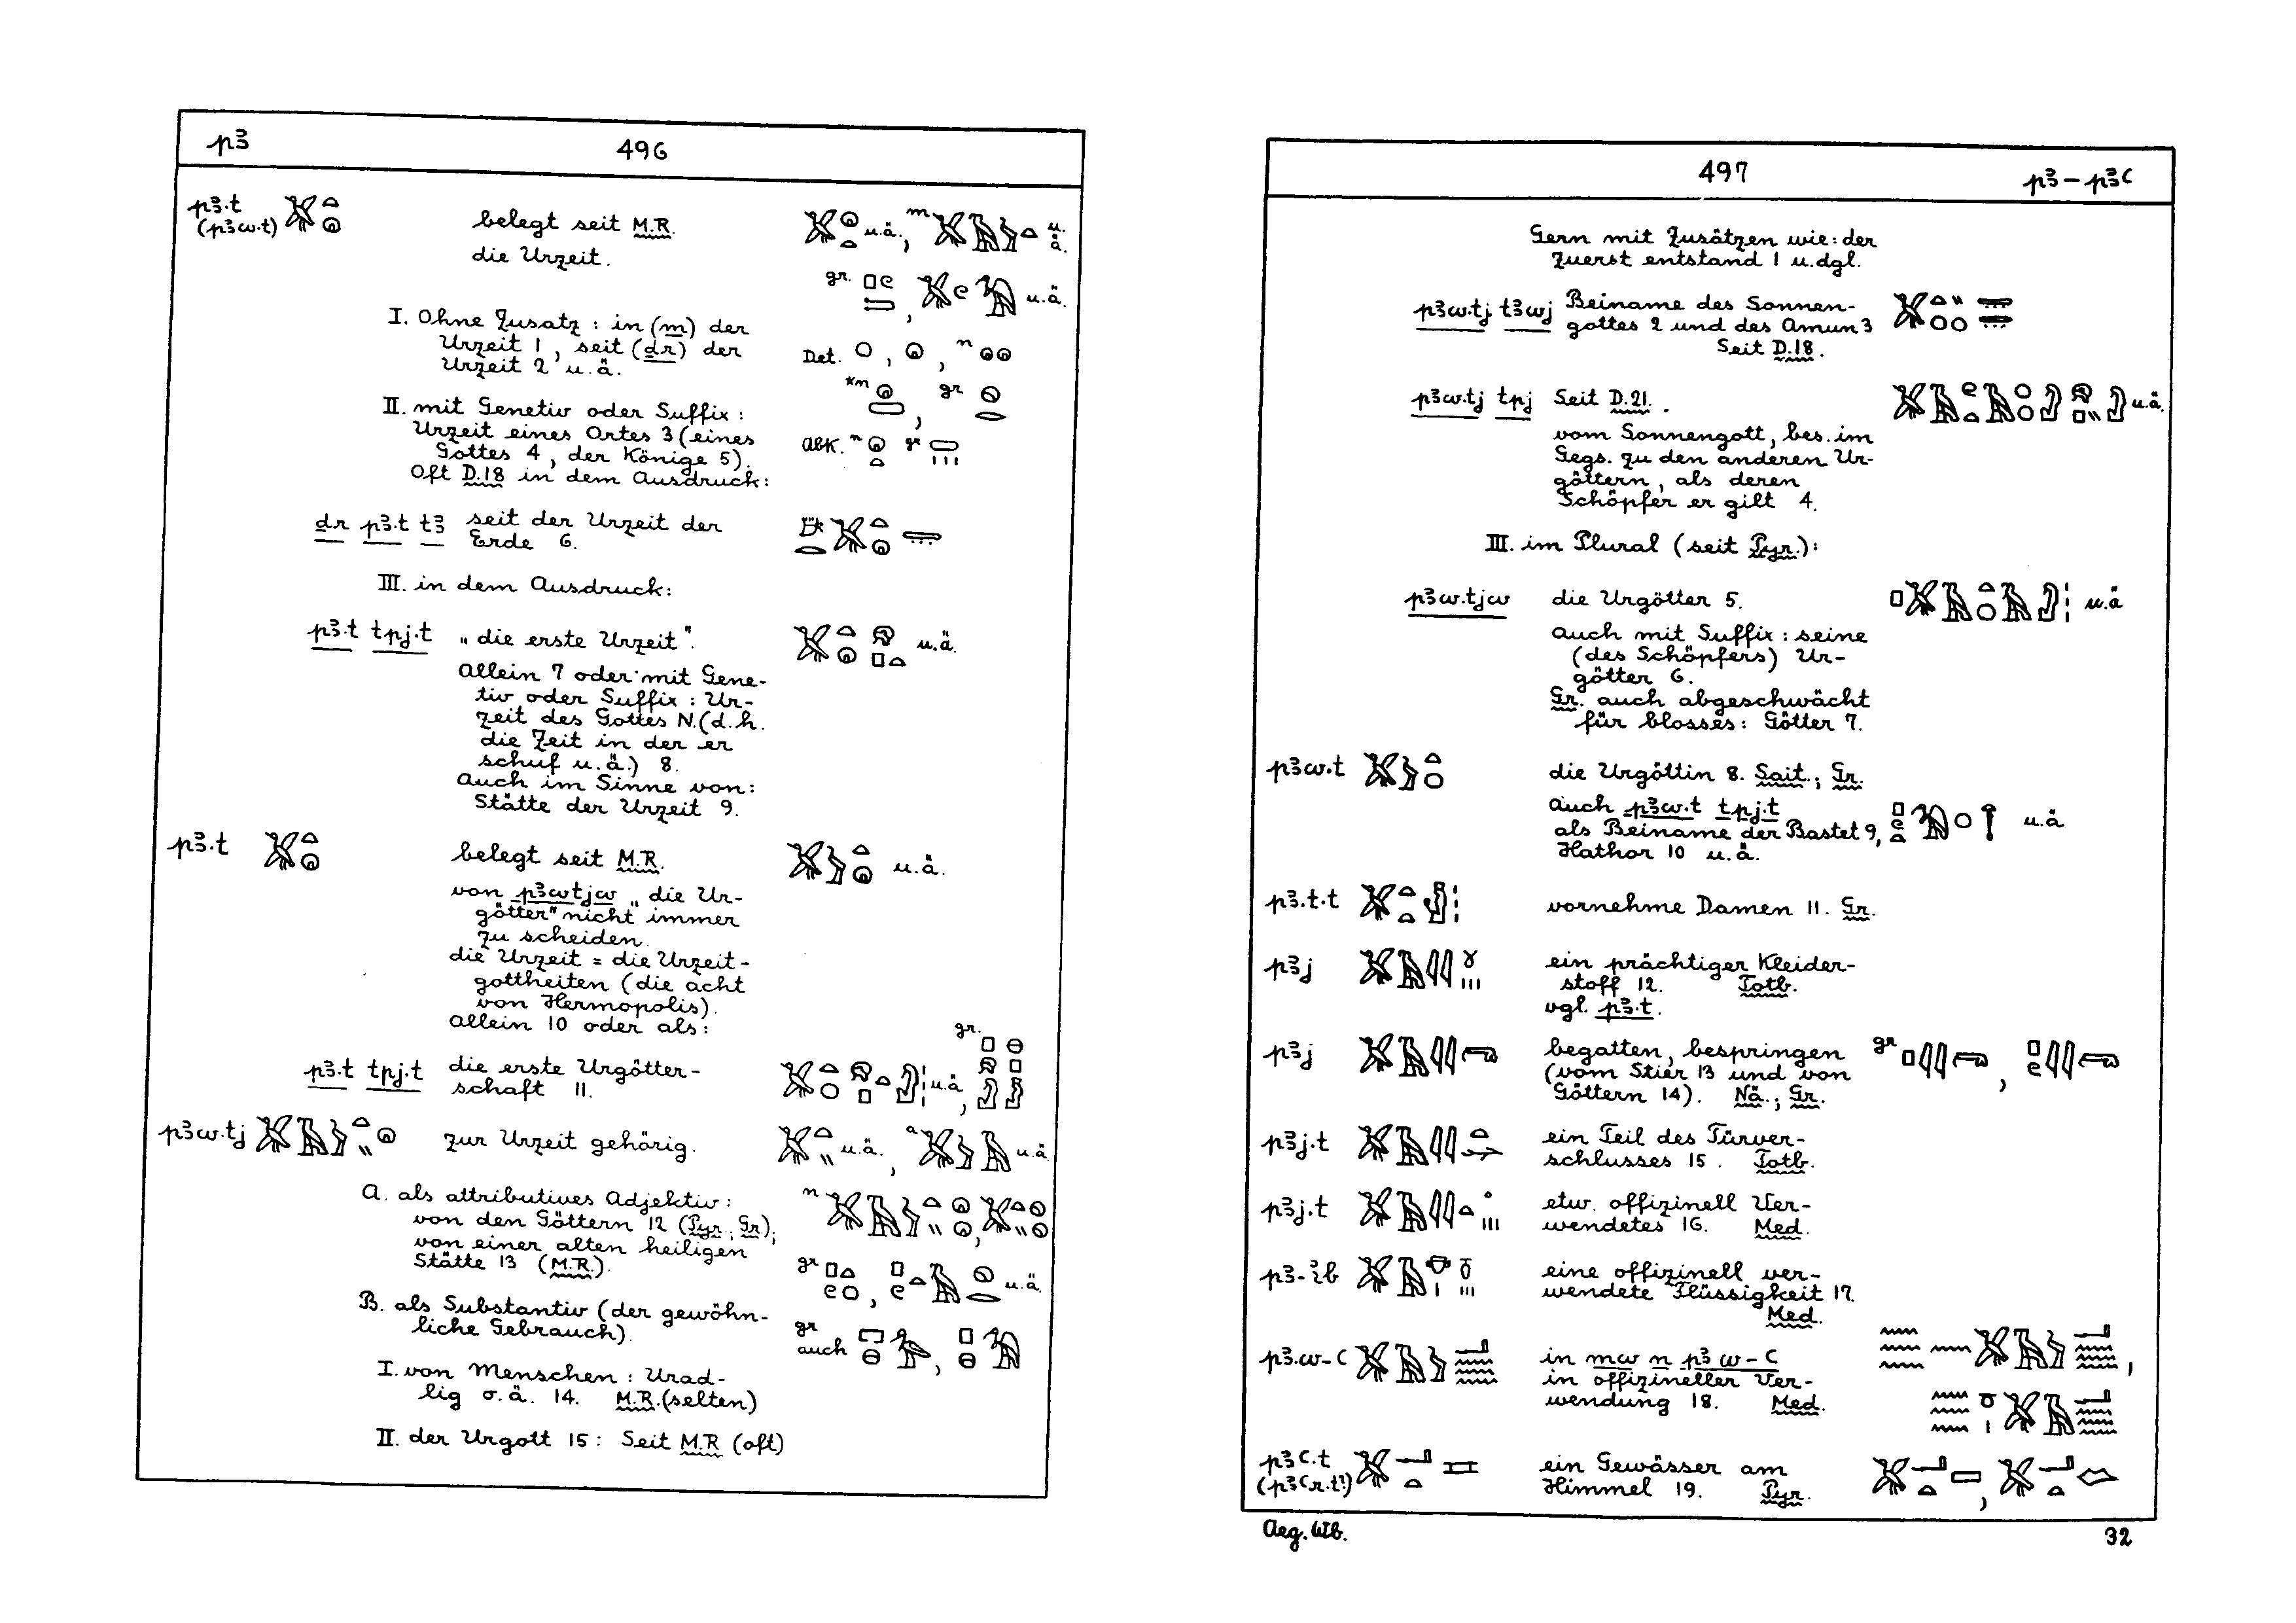 p3 496
p3.t
(p3w.t)
belegt seit M.R.
u.ä., m u.
ä.
die Urzeit.
gr. , u.ä.
I. Ohne Zusatz : in (m) der
Urzeit 1, seit (dr) der
Urzeit 2 u.ä.
Det. , , n
*m , gr
II. mit Genetiv oder Suffix :
Urzeit eines Ortes 3 (eines
Gottes 4, der Könige 5).
Oft D.18 in dem Ausdruck:
Abk. n gr
dr p3.t t3 seit der Urzeit der
Erde 6.
III. in dem Ausdruck:
p3.t tpj.t „die erste Urzeit". u.ä.
Allein 7 oder mit Gene-
tiv oder Suffix : Ur-
zeit des Gottes N. (d.h.
die Zeit in der er
schuf u.ä.) 8.
Auch im Sinne von:
Stätte der Urzeit 9.
p3.t belegt seit M.R. u.ä.
von p3wtjw „die Ur-
götter" nicht immer
zu scheiden.
die Urzeit = die Urzeit-
gottheiten (die acht
von Hermopolis).
Allein 10 oder als:
gr.
p3.t tpj.t die erste Urgötter-
schaft 11.
u.ä.,
p3w.tj zur Urzeit gehörig. u.ä., a u.ä.
A. als attributives Adjektiv :
von den Göttern 12 (Pyr., Gr.),
von einer alten heiligen
Stätte 13 (M.R.).
n ,
gr , u.ä.
B. als Substantiv (der gewöhn-
liche Gebrauch).
gr
auch ,
I. von Menschen : Urad-
lig o.ä. 14. M.R. (selten)
II. der Urgott 15 : Seit M.R (oft)
497 p3 – p3c
Gern mit Zusätzen wie : der
zuerst entstand 1 u.dgl.
p3w.tj t3wj Beiname des Sonnen-
gottes 2 und des Amun 3
Seit D.18.
p3w.tj tpj Seit D.21. u.ä.
vom Sonnengott, bes. im
Gegs. zu den anderen Ur-
göttern, als deren
Schöpfer er gilt 4.
III. im Plural (seit Pyr.):
p3w.tjw die Urgötter 5. u.ä
auch mit Suffix : seine
(des Schöpfers) Ur-
götter 6.
Gr. auch abgeschwächt
für blosses: Götter 7.
p3w.t die Urgöttin 8. Sait.; Gr.
auch p3w.t tpj.t
als Beiname der Bastet 9,
Hathor 10 u.ä.
u.ä
p3.t.t vornehme Damen 11. Gr.
p3j ein prächtiger Kleider-
stoff 12. Totb.
vgl. p3.t.
p3j begatten, bespringen
(vom Stier 13 und von
Göttern 14). Nä.; Gr.
gr ,
p3j.t ein Teil des Türver-
schlusses 15. Totb.
p3j.t etw. offizinell Ver-
wendetes 16. Med.
p3-ib eine offizinell ver-
wendete Flüssigkeit 17.
Med.
p3.w-c in mw n p3w-c
in offizineller Ver-
wendung 18. Med.
p3c.t
(p3cr.t?)
ein Gewässer am
Himmel 19. Pyr.
Aeg. Wb. 32